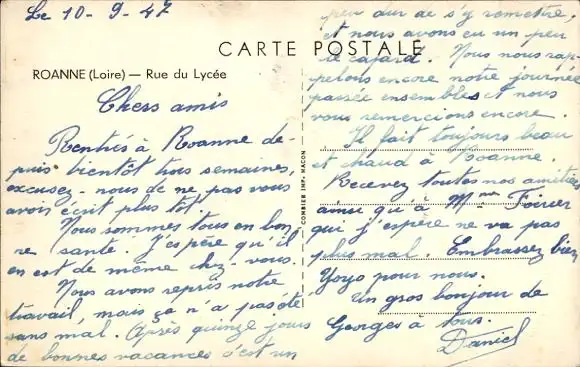 Le 10-9-47
CARTE POSTALE
ROANNE (Loire) — Rue du Lycée
Chers amis
Rentrés à Roanne de-
puis bientôt trois semaines,
excusez-nous de ne pas vous
avoir écrit plus tôt.
Nous sommes tous en bon-
ne santé. J'espère qu'il
en est de même chez-vous.
Nous avons repris notre
travail, mais ça n'a pas été
sans mal. Après quinze jours
de bonnes vacances c'est un
peu dur de s'y remettre,
et nous avons eu un peu
le cafard. Nous nous rap-
pelons encore notre journée
passée ensembles et nous
vous remercions encore.
Il fait toujours beau
et chaud à Roanne.
Recevez toutes nos amitiés
ainsi qu'à Mme
qui j'espère ne va pas
plus mal. Embrassez bien
Yoyo pour nous.
Un gros bonjour de
Georges à tous.
Daniel
COMBIER IMP. MACON